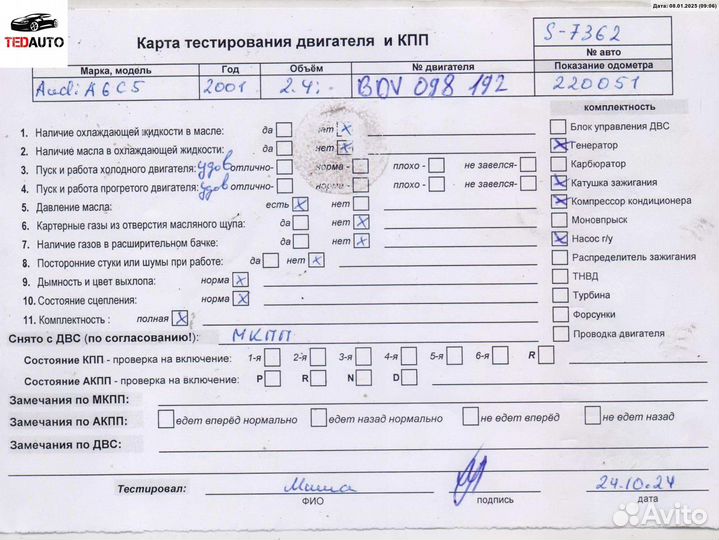 Дата: 08.01.2025 (09:06)
TEDAUTO
Карта тестирования двигателя и КПП
S-7362
№ авто
Марка, модель Год Объём № двигателя Показание одометра
Audi A6 C5 2001 2.4i BDV 098 192 220051
комплектность
1. Наличие охлаждающей жидкости в масле: да нет x
Блок управления ДВС
2. Наличие масла в охлаждающей жидкости: да нет x
x Генератор
3. Пуск и работа холодного двигателя: удов отлично- норма - плохо - не завелся-
Карбюратор
4. Пуск и работа прогретого двигателя: удов отлично- норма - плохо - не завелся-
x Катушка зажигания
5. Давление масла: есть x нет
x Компрессор кондионера
6. Картерные газы из отверстия масляного щупа: да нет x
Моновпрыск
7. Наличие газов в расширительном бачке: да нет x
x Насос г/у
8. Посторонние стуки или шумы при работе: да нет x
Распределитель зажигания
9. Дымность и цвет выхлопа: норма x
ТНВД
10. Состояние сцепления: норма x
Турбина
11. Комплектность : полная x
Форсунки
Снято с ДВС (по согласованию!): МКПП
Проводка двигателя
Состояние КПП - проверка на включение: 1-я 2-я 3-я 4-я 5-я 6-я R
Состояние АКПП - проверка на включение: P R N D
Замечания по МКПП:
Замечания по АКПП: едет вперёд нормально едет назад нормально не едет вперёд не едет назад
Замечания по ДВС:
Тестировал: Маша 24.10.24
ФИО подпись дата
Avito